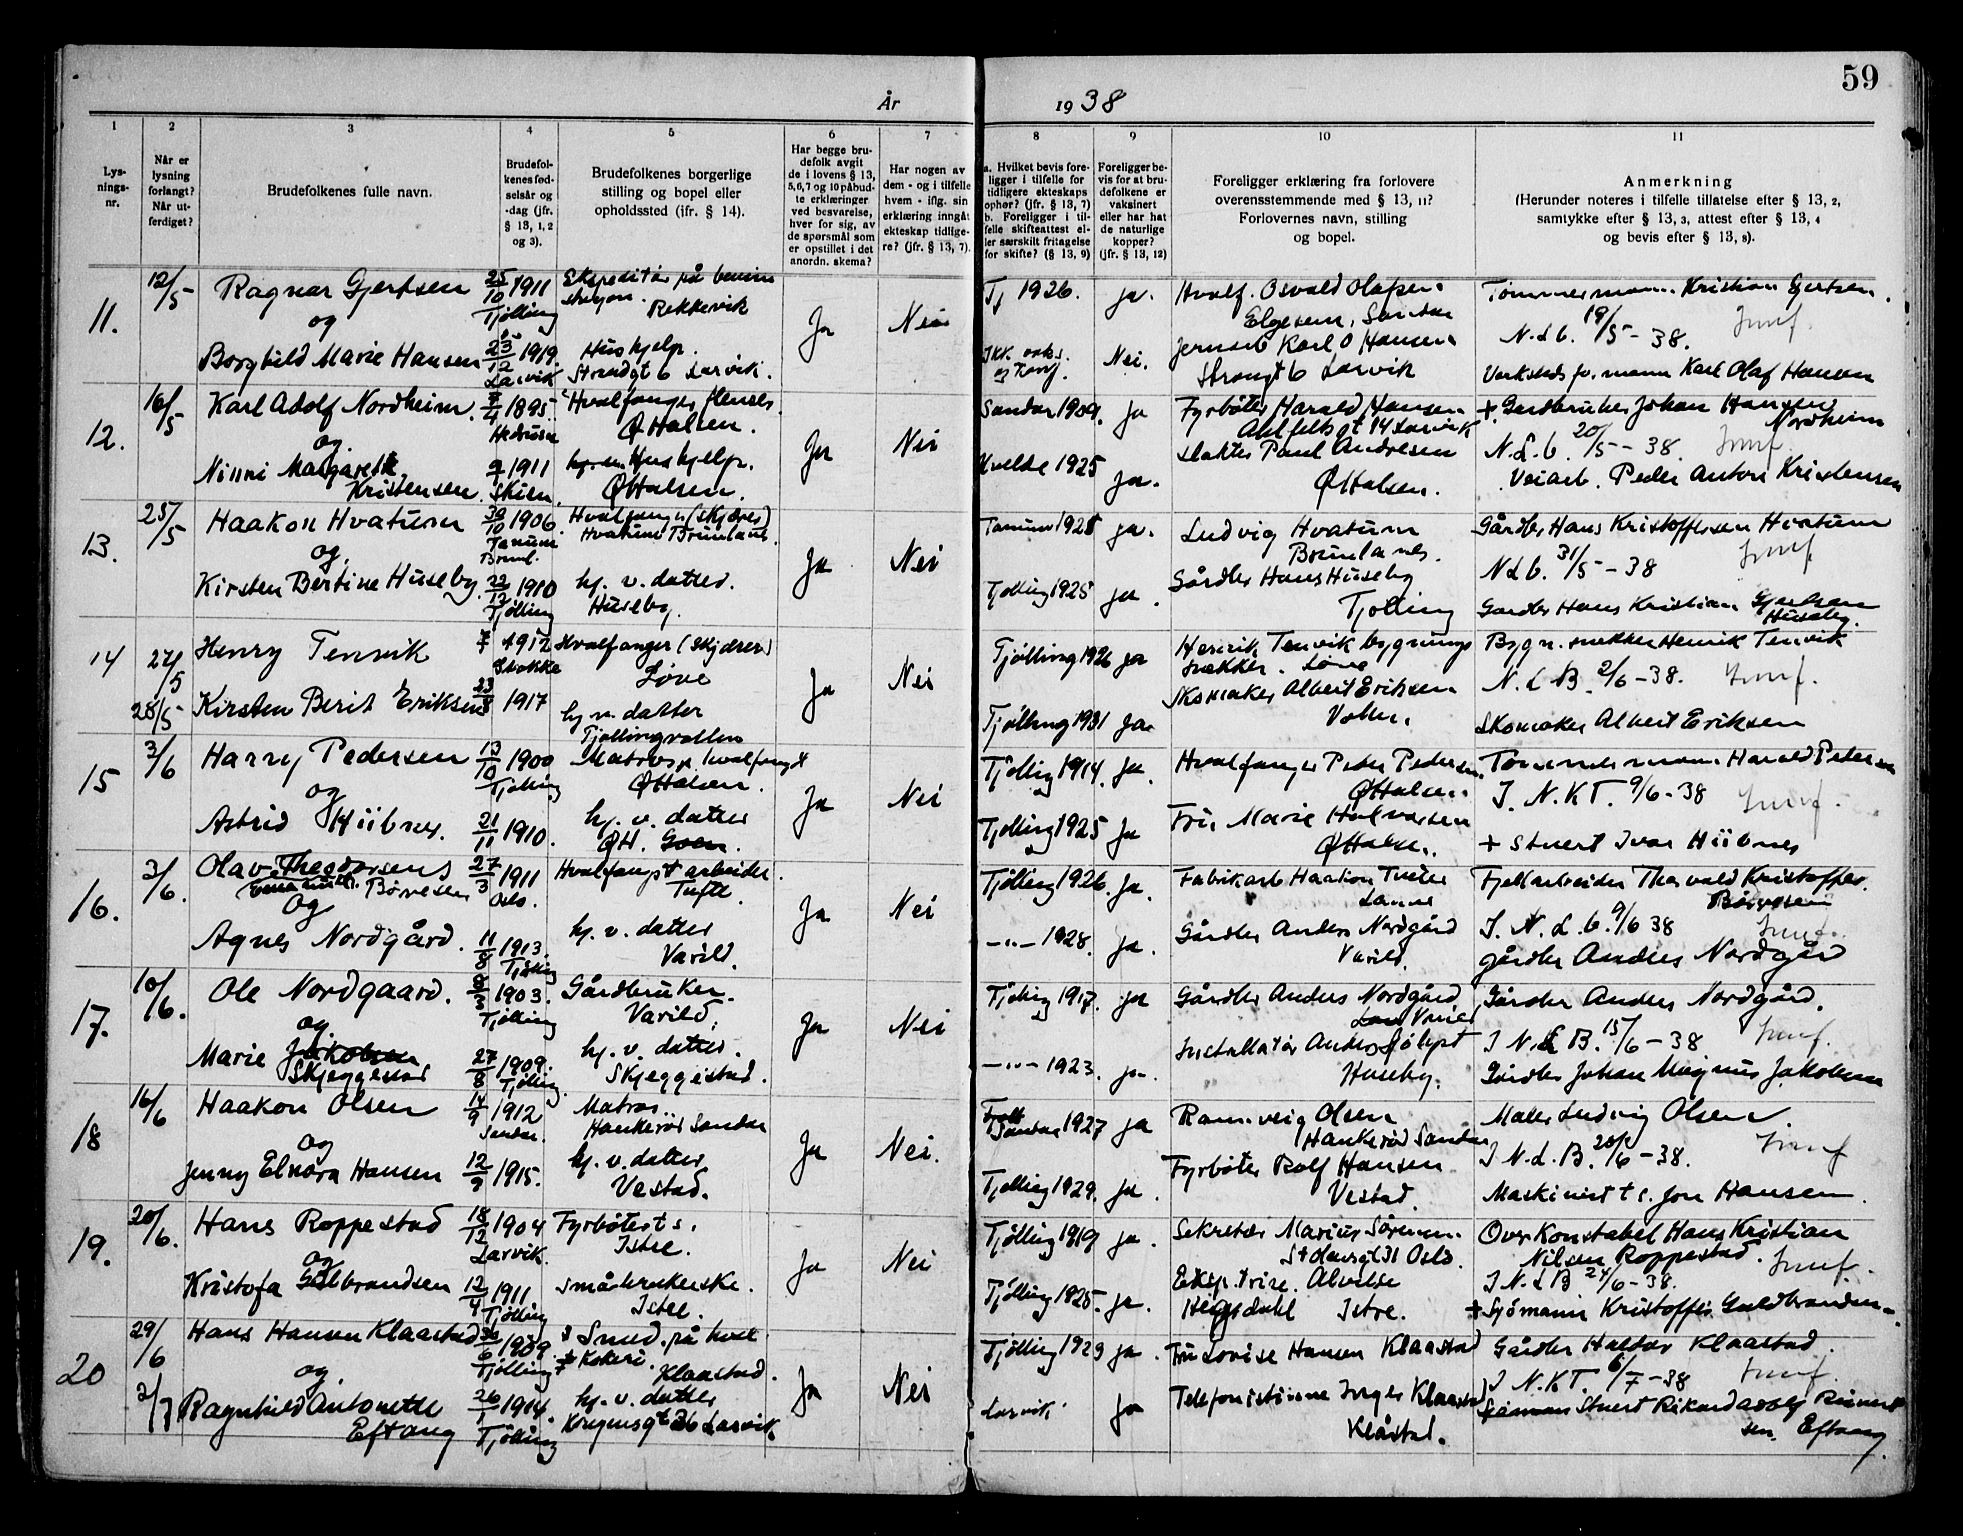 59
År 1938
1 2 3 4 5 6 7 8 9 10 11
Lys-
nings-
nr.
Når er
lysning
forlangt?
Når ut-
ferdiget?
Brudefolkenes fulle navn.
Brudefol-
kenes fød-
selsår og
-dag (jfr.
§ 13, 1, 2
og 3).
Brudefolkenes borgerlige
stilling og bopel eller
opholdssted (ifr. § 14).
Har begge bru-
defolk avgit
de i lovens § 13,
5,6,7 og 10 påbud-
te erklæringer
ved besvarelse,
hver for sig, av
de spørsmål som
er opstillet i det
anordn. skema?
Har nogen av
dem - og i tilfelle
hvem - iflg. sin
erklæring inngåt
ekteskap tidlige-
re? (jfr. § 13, 7).
a. Hvilket bevis fore-
ligger i tilfelle for
tidligere ekteskaps
ophør? (jfr. § 13, 7)
b. Foreligger i til-
felle skifteattest el-
ler særskilt fritagelse
for skifte? (§ 13, 9)
Foreligger be-
vis for at bru-
defolkene er
vaksinert
eller har hat
de naturlige
kopper?
(jfr. § 13, 12)
Foreligger erklæring fra forlovere
overensstemmende med § 13, 11?
Forlovernes navn, stilling
og bopel.
Anmerkning
(Herunder noteres i tilfelle tillatelse efter § 13, 2,
samtykke efter § 13, 3, attest efter § 13, 4
og bevis efter § 13, 8).
11. 12/5 Ragnar Gjertsen 25/10 1911 Tjølling Ekspeditør på bensin
Rekkevik
og Ja Nei
Tj 1926. ja. Hvalf. Osvald Olafsen
Elgesem, Sandar
Tømmermann Kristian Gjertsen.
N.L.b. 19/5 - 38.
Borghild Marie Hansen 23/12 1919. Larvik Hushjelp.
Strandgt 6 Larvik.
Nei. Karl O Hansen
6 Larvik
Karl Olaf Hansen
12. 16/5 Karl Adolf Nordheim 1895 Hedrum Hvalfanger
Ø Halsen.
og Ja Nei
Sandar 1909. Ja Fyrbøter Harald Hansen
14 Larvik
+ Gardbruker Johan Hansen
Nordheim
N.L.b. 20/5 - 38.
Ninni Margareth
Kristensen 1911 Skien. Hushjelp.
Ø Halsen.
Kvelde 1925 Ja. Slakter Paul Andresen
Ø Halsen.
Veiarb. Peder Anton Kristensen
13. 25/5 Haakon Hvatum 30/10 1906 Tanum Brunl. Hvalfanger (skytter)
Hvatum Brunlanes
og. Ja Nei
Tanum 1925 ja. Ludvig Hvatum
Brunlanes.
Gårdbr Hans Kristoffersen Hvatum
N L b. 31/5 - 38
Kirsten Bertine Huseby 22/12 1910 Tjølling hj. v. datter.
Huseby.
Tjølling 1925 ja. Gårdbr Hans Huseby
Tjølling
Gardbr Hans Kristian Gjertsen
Huseby.
14 27/5 Henry Tenvik 1912 Stokke Hvalfanger
Løve
28/5 Ja Nei
Tjølling 1926 ja Henrik Tenvik bygnings
snekker. Løve
Bygn. snekker Henrik Tenvik
N. L B. 2/6 - 38.
Kirsten Berit Eriksen 23/8 1917 hj v. datter
Tjøllingvollen
Tjølling 1931 Ja Skomaker Albert Eriksen
Vollen.
Skomaker Albert Eriksen
15 3/6 Harry Pedersen 13/10 1900 Tjølling Matros p. hvalfangst
Ø Halsen.
og Ja Nei
Tjølling 1914. Ja. Hvalfanger Peder Pedersen
Ø Halsen.
Tømmermann Harald Pedersen
I. N. K T. 9/6 - 38
Astrid Hübner. 21/11 1910. hj. v. datter
ØH. Goen.
Tjølling 1925 Ja Fru Marie Halvorsen
Ø Halsen.
+ Stuert Ivar Hübner
16. 3/6. Olav Theodorsen
Børresen 27/3 1911 Oslo. Hvalfangst arbeider.
Tufte.
Og Ja Nei
Tjølling 1926. Ja. Fabrikarb Haakon
Fjellarbeider Thorvald Kristoffer.
Børresen
I. N. L. b. 9/6 38
Agnes Nordgård. 11/8 1913. Tjølling hj. v. datter
Varild.
-"- 1928. ja. Gårdbr Anders Nordgård
Varild.
gårdbr Anders Nordgård
17. 10/6. Ole Nordgaard. 1903. Tjølling Gårdbruker.
Varild.
og. Ja Nei
Tjølling 1917. ja Gårdbr Anders Nordgård
Varild
Gårdbr Anders Nordgård.
I N. L B. 15/6 - 38
Marie Jakobsen
Skjeggestad 27/8 1909. Tjølling hj. v. datter.
Skjeggestad.
-"- 1923. ja. Installatør Anders
Huseby.
Gårdbr Johan Magnus Jakobsen
18 16/6 Haakon Olsen 14/9 1912 Sandar. Matros.
Hankerød Sandar
Og Ja Nei.
Sandar 1927 ja Rannveig Olsen
Hankerød Sandar
Maler Ludvig Olsen
I N. L. B. 20/6 - 38.
Jenny Elnora Hansen 12/9 1915. hj. v. datter
Vestad.
Tjølling 1929. ja. Fyrbøter Rolf Hansen
Vestad.
Maskinist t s. Jon Hansen.
19. 20/6. Hans Roppestad 18/12 1904 Larvik. Fyrbøter t s.
Istre.
og Ja Nei
Tjølling 1919 ja. Sekretær Marius Sørensen.
St Olavsgt 31 Oslo.
Overkonstabel Hans Kristian
Nilsen Roppestad.
I N. L B 24/6 - 38.
Kristofa Gulbrandsen 12/4 1911 Tjølling Småbrukerske.
Istre.
Tjølling 1925. ja. Eksp.trise. Alvilde
Hegdahl Istre.
+ Sjømann Kristoffer Guldbrandsen.
20 29/6 Hans Hansen Klaastad 1909 Tjølling Smed på hval
kokeri. Klaastad.
og. Ja Nei
Tjølling 1923 ja. Fru Lovise Hansen Klaastad
Gårdbr Halvor Klaastad.
I N. K T 6/7 - 38
2/7 Ragnhild Antonette
Eftang 26/1 1914. Tjølling hj. v. datter
Kongensgt 36 Larvik.
Larvik. Ja Telefonistinne Inger Klaastad
Klåstad.
Stuert Rikard Adolf
Eftang